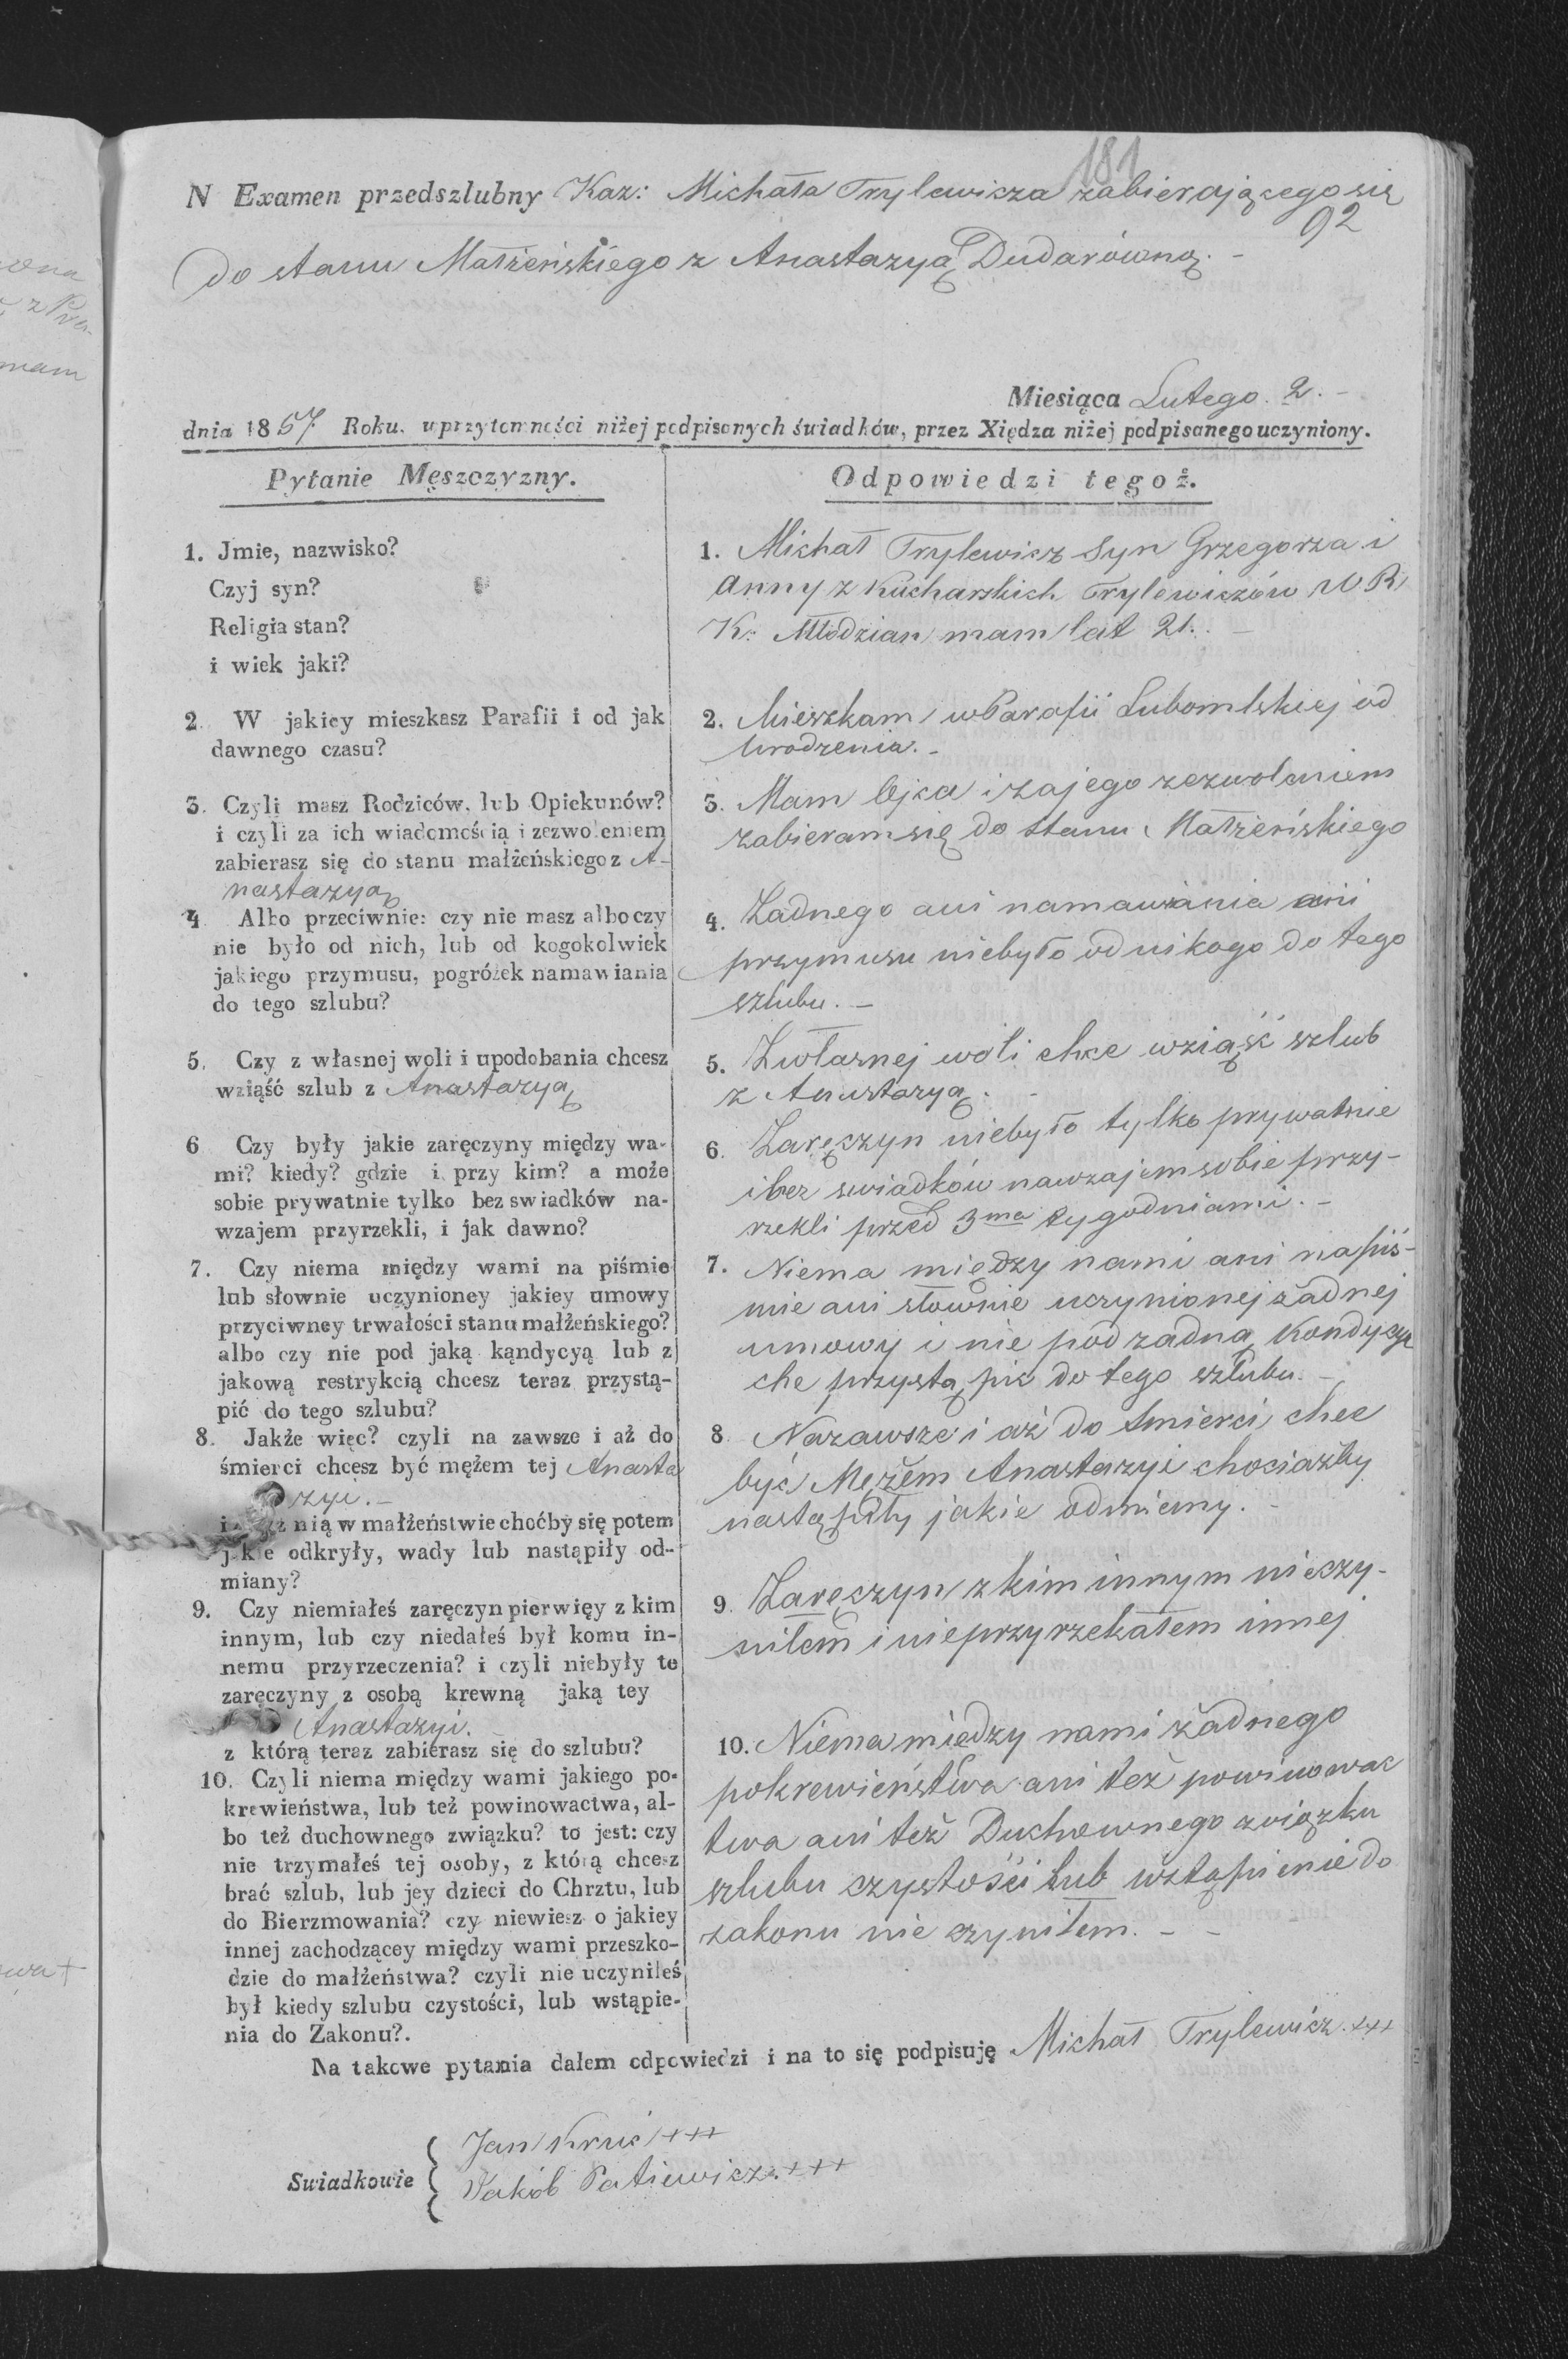 181
N Examen przedszlubny Kaz: Michała Trylewicza zabierającego się
92
do stanu Małżeńskiego z Anastazyą Dudarówną. -
Miesiąca Lutego. 2. -
dnia 1857. Roku. w przytomności niżej podpisanych świadków, przez Xiędza niżej podpisanego uczyniony.
Pytanie Męszczyzny.
1. Jmie, nazwisko?
Czyj syn?
Religia stan?
i wiek jaki?
2. W jakiey mieszkasz Parafii i od jak
dawnego czasu?
3. Czyli masz Rodziców, lub Opiekunów?
i czyli za ich wiadomością i zezwoleniem
zabierasz się do stanu małżeńskiego z A-
nastazyą
4 Albo przeciwnie: czy nie masz albo czy
nie było od nich, lub od kogokolwiek
jakiego przymusu, pogróżek namawiania
do tego szlubu?
5. Czy z własnej woli i upodobania chcesz
wziąść szlub z Anastazyą
6 Czy były jakie zaręczyny między wa-
mi? kiedy? gdzie i przy kim? a może
sobie prywatnie tylko bez swiadków na-
wzajem przyrzekli, i jak dawno?
7. Czy niema między wami na piśmie
lub słownie uczynioney jakiey umowy
przyciwney trwałości stanu małżeńskiego?
albo czy nie pod jaką kąndycyą lub z
jakową restrykcią chcesz teraz przystą-
pić do tego szlubu?
8. Jakże więc? czyli na zawsze i aż do
śmierci chcesz być mężem tej Anasta
zyi. -
nią w małżeństwie choćby się potem
odkryły, wady lub nastąpiły od-
miany?
9. Czy niemiałeś zaręczyn pierwięy z kim
innym, lub czy niedałeś był komu in-
nemu przyrzeczenia? i czyli niebyły te
zaręczyny z osobą krewną jaką tey
Anastazyi.
z którą teraz zabierasz się do szlubu?
10. Czyli niema między wami jakiego po-
krewieństwa, lub też powinowactwa, al-
bo też duchownego związku? to jest: czy
nie trzymałeś tej osoby, z którą chcesz
brać szlub, lub jey dzieci do Chrztu, lub
do Bierzmowania? czy niewiesz o jakiey
innej zachodzącey między wami przeszko-
dzie do małżeństwa? czyli nie uczyniłeś
był kiedy szlubu czystości, lub wstąpie-
nia do Zakonu?.
Odpowiedzi tegoż.
1. Michał Trylewicz Syn Grzegorza i
Anny z Kucharskich Trylewiczów W R
K: Młodzian mam lat 21. -
2. Mieszkam w Parafii Lubomlskiej od
urodzenia. -
3. Mam Ojca i za jego zezwoleniem
zabieram się do stanu Małżeńskiego
4. Żadnego ani namawiania ani
przymusu niebyło od nikogo do tego
szlubu. -
5. Z własnej woli chce wziąść szlub
z Anastazyą. -
6. Zaręczyn niebyło tylko prywatnie
i bez swiadków nawzajem sobie przy-
rzekli przed 3ma tygodniami. -
7. Niema między nami ani na piś-
mie ani słownie uczynionej żadnej
umowy i nie pod żadną Kondycyą
che przystąpić do tego szlubu. -
8 Nazawsze i aż do Smierci chce
być Mężem Anastazyi chociażby
nastąpiły jakie odmiany. -
9. Zaręczyn z kim innym nieczy-
niłem i nieprzyrzekałem innej
10. Niema między nami żadnego
pokrewieństwa ani też powinowac
twa ani też Duchownego związku
szlubu czystości Lub wstąpienie do
zakonu nie czyniłem. - -
Na takowe pytania dałem odpowiedzi i na to się podpisuję Michał Trylewicz. +++
Swiadkowie
Jan Kruć +++
Jakób Patiewicz. +++